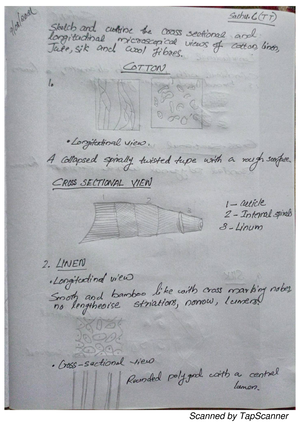 Section C (TT)
Sketch and outline the cross sectional and
longitudinal microscopical views of cotton, linen,
Jute, silk and wool fibres.
COTTON
1.
• Longitudinal view.
A collapsed spirally twisted tupe with a rough surface.
CROSS SECTIONAL VIEW
1 2
1 — cuticle
2 - Internal spirals
3 - Linum
2. LINEN
• Longitudinal view
Smoth and bamboo like with cross marking nodes
no lengthwise striations, narrow, lumen
• Cross-sectional view
Rounded polygnal with a central
lumen.
Scanned by TapScanner